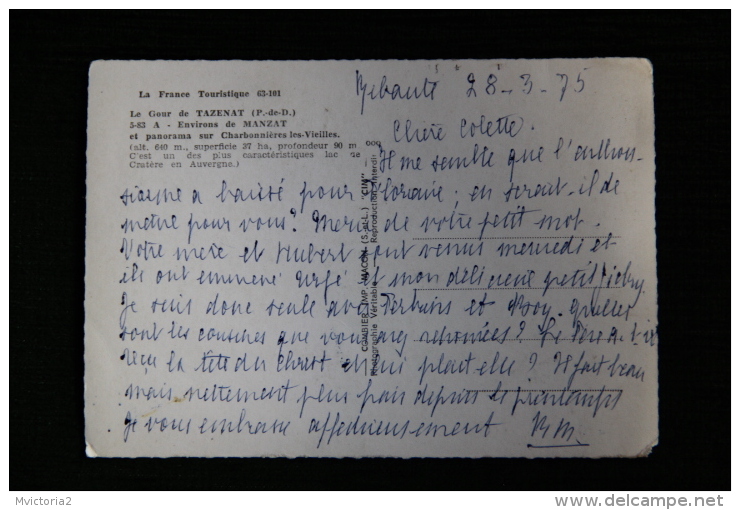 La France Touristique 63-101
Le Gour de TAZENAT (P.-de-D.)
5-83 A - Environs de MANZAT
et panorama sur Charbonnières-les-Vieilles.
(alt. 640 m., superficie 37 ha, profondeur 90 m
C'est un des plus caractéristiques lac de
Cratère en Auvergne.)
COMBIER IMP. MACON (S.-A.-L.) "CIM"
Photographie Véritable - Reproduction Interdite
28-3-75
Chère Colette.
Il me semble que l'enthou-
siasme a baissé pour ; en serait-il de
même pour vous? Merci de votre petit mot.
Votre mère et Hubert sont venus mercredi et
ils ont emmené et mon délicieux petit
Je suis donc seule avec et
sont les couches que vous avez ? Le Père a-t-il
reçu la tête du Christ et lui plait elle? Il fait beau
mais nettement plus frais depuis le printemps
Je vous embrasse affectueusement
Mvictoria2
www.delcampe.net